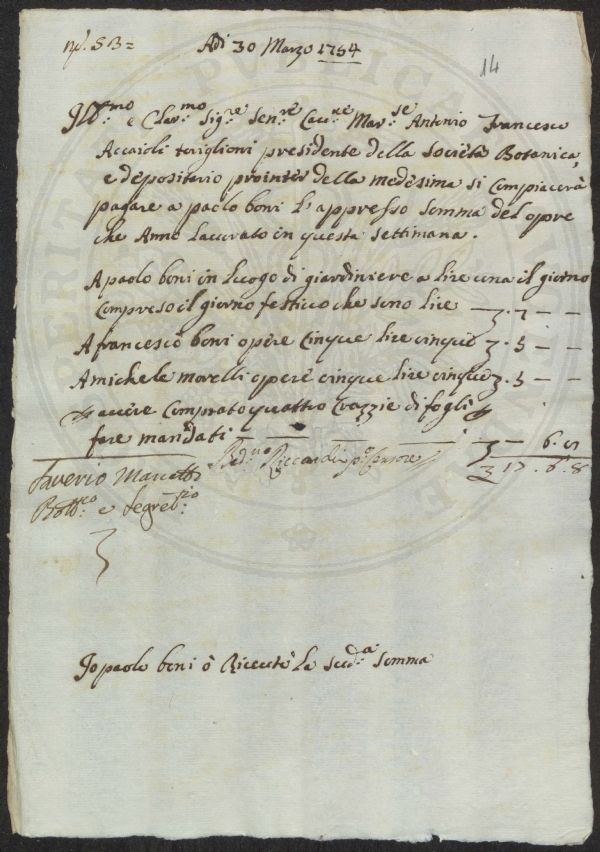 nº. 53=
Adì 30 Marzo 1754
14
Ill:mo e Clar:mo Sig:re Sen:re Cav:re Mar:se Antonio Francesco
Acciaioli toriglioni presidente della società Botanica,
e depositario prointer della medesima si Compiacerà
pagare a paolo boni L'appresso Somma del opre
che Anno Lavorato in questa settimana.
A paolo boni in Luogo di giardiniere a lire una il giorno
Compreso il giorno festivo che sono lire 7
A francesco boni opere Cinque lire cinque 5
A michele morelli opere cinque lire cinque 5
avere Comprato quattro Crazzie di fogli
fare mandati 6.8
17.6.8
Saverio Manetti
e Segret:rio
Riccardi
Io paolo boni ò Riceuto La sud:a Somma